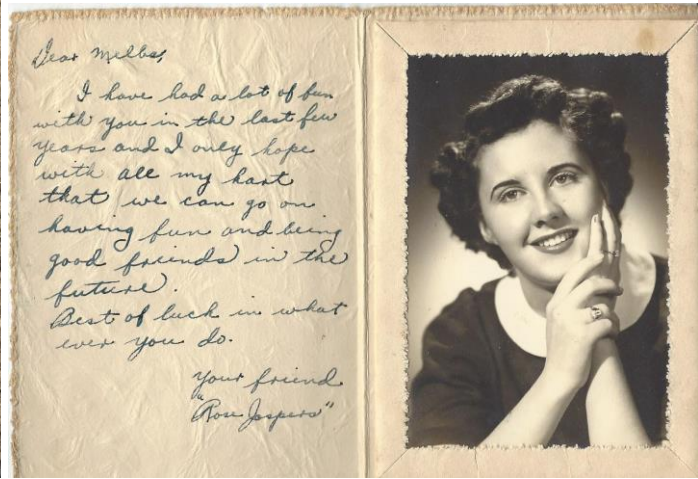 Dear Melba,
I have had a lot of fun
with you in the last few
years and I only hope
with all my hart
that we can go on
having fun and being
good friends in the
future.
Best of luck in what
ever you do.
your friend
"Rose Jaspers"